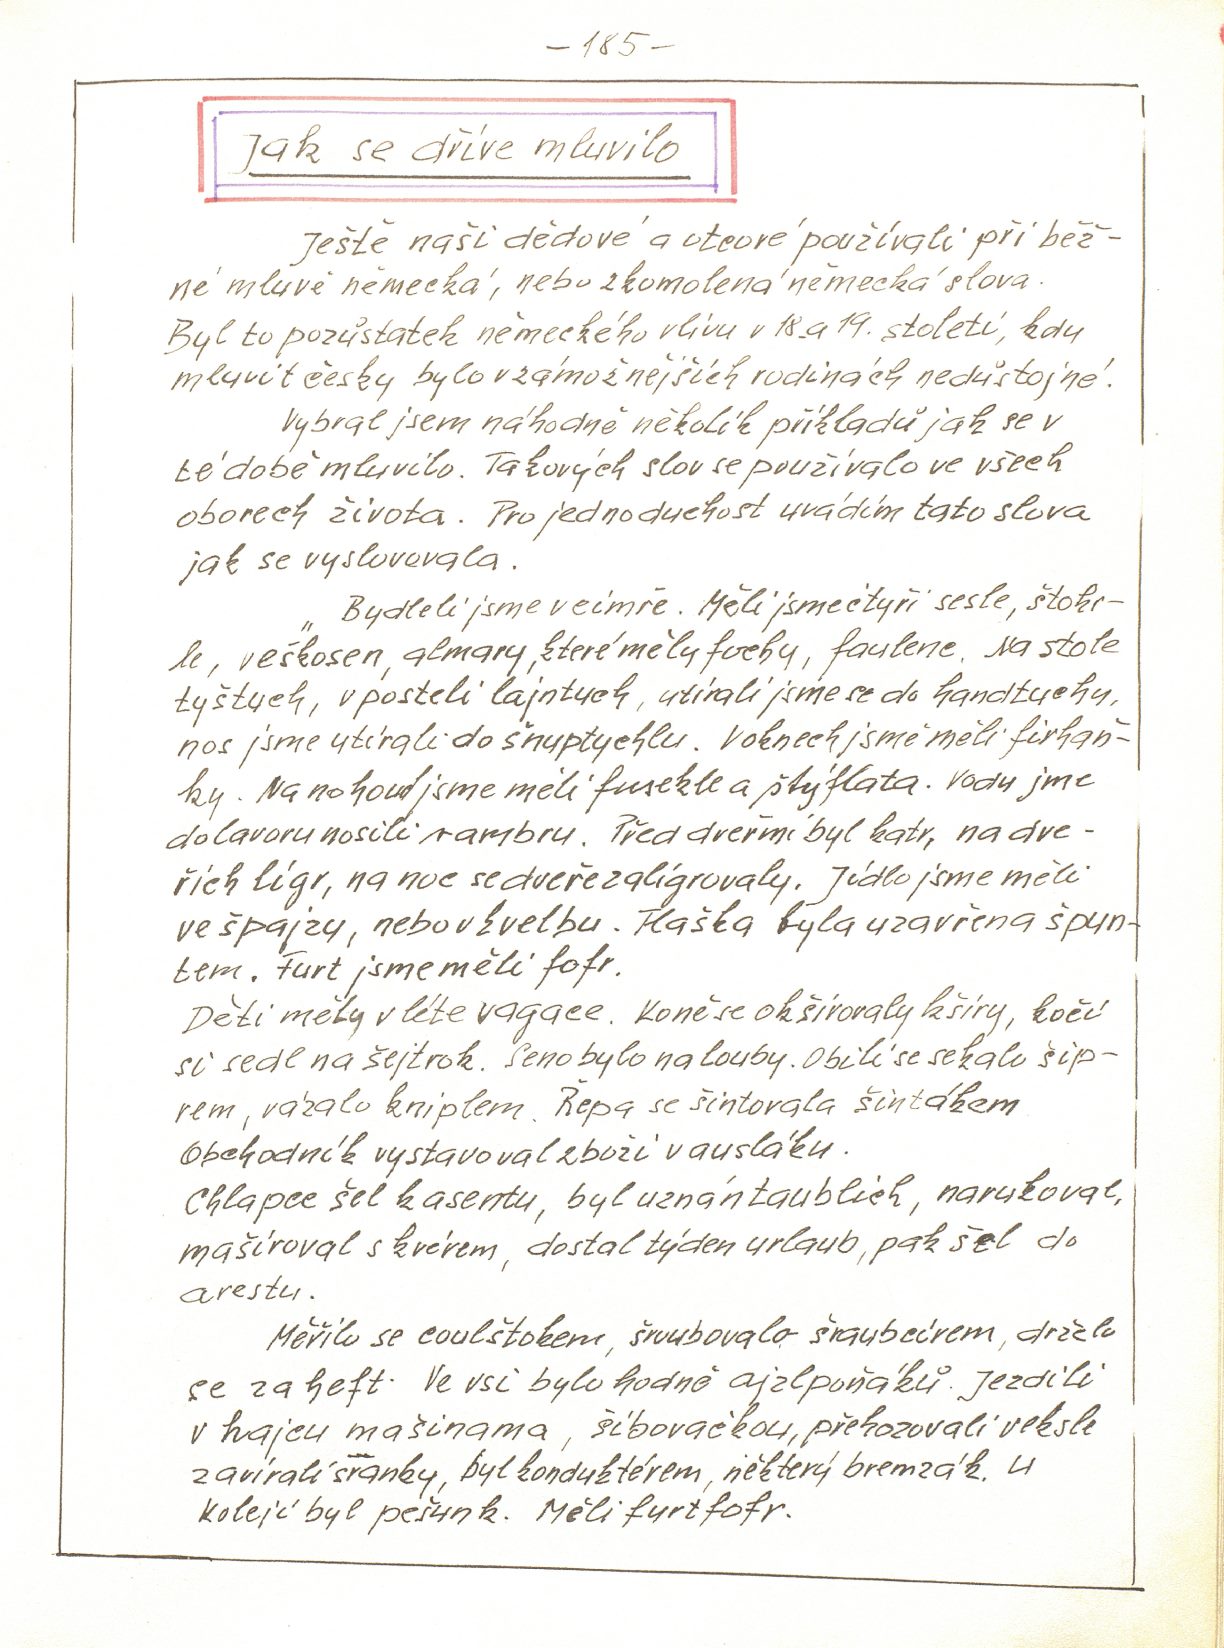 - 185 -
Jak se dříve mluvilo
Ještě naši dědové a otcové používali při běž-
né mluvě německá, nebo zkomolená německá slova.
Byl to pozůstatek německého vlivu v 18. a 19. století, kdy
mluvit česky bylo v zámožnějších rodinách nedůstojné.
Vybral jsem náhodně několik příkladů jak se v
té době mluvilo. Takových slov se používalo ve všech
oborech života. Pro jednoduchost uvádím tato slova
jak se vyslovovala.
„Bydleli jsme v cimře. Měli jsme čtyři sesle, štokr-
le, veškosen, almary, které měly fochy, faulene. Na stole
tyštuch, v posteli lajntuch, utírali jsme se do handtuchu,
nos jsme utírali do šnuptychlu. V oknech jsme měli firhaň-
ky. Na nohou jsme měli fusekle a štýflata. Vodu jme
do lavoru nosili v ambru. Před dveřmi byl katr, na dve-
řích lígr, na noc se dveře zalígrovaly. Jídlo jsme měli
ve špajzu, nebo v kvelbu. Flaška byla uzavřena špun-
tem. Furt jsme měli fofr.
Děti měly v létě vagace. Koně se okšírovaly kšíry, kočí
si sedl na šejtrok. Seno bylo na louby. Obilí se sekalo šíp-
rem, vázalo kniplem. Řepa se šintovala šintákem
Obchodník vystavoval zboží v ausláku.
Chlapec šel k asentu, byl uznán taublich, narukoval,
mašíroval s kvérem, dostal týden urlaub, pak šel do
arestu.
Měřilo se coulštokem, šroubovalo šraubcírem, drželo
se za heft. Ve vsi bylo hodně ajzlpoňáků. Jezdili
v hajcu mašinama, šíbovačkou, přehozovali veksle
zavírali šranky, byl konduktérem, některý bremzák. U
kolejí byl pešunk. Měli furt fofr.